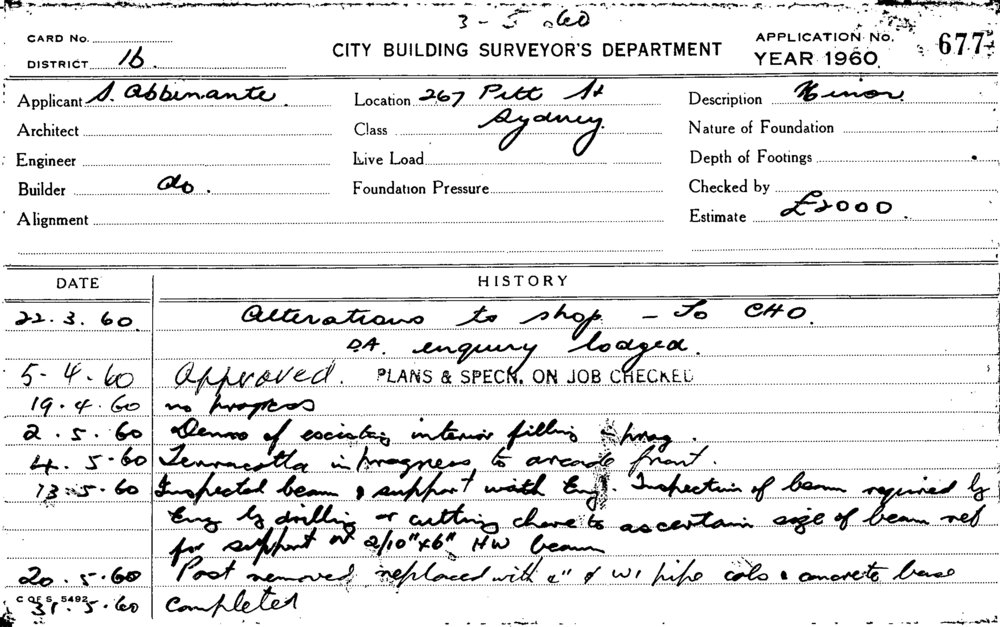 3-5.60
CARD No.
CITY BUILDING SURVEYOR'S DEPARTMENT
APPLICATION No. 677
YEAR 1960
DISTRICT 16
Applicant S. Abbinante
Location 267 Pitt St
Sydney
Description Minor
Architect
Class
Nature of Foundation
Engineer
Live Load
Depth of Footings
Builder do.
Foundation Pressure
Checked by
Alignment
Estimate £2000
DATE HISTORY
22.3.60 Alterations to shop - To CHO.
DA. enquiry lodged.
5-4.60 Approved. PLANS & SPECN. ON JOB CHECKED
19.4.60 no progress
2.5.60 Demo of existing interior filling in prog.
4.5.60 Terracotta in progress to arcade front.
13.5.60 Inspected beam & support with Eng. Inspection of beam required by
Eng by drilling or cutting chase to ascertain size of beam ref
for support or 2/10"x6" HW beam
20.5.60 Post removed replaced with pipe cols & concrete base
C OF S 5492
31.5.60 completed